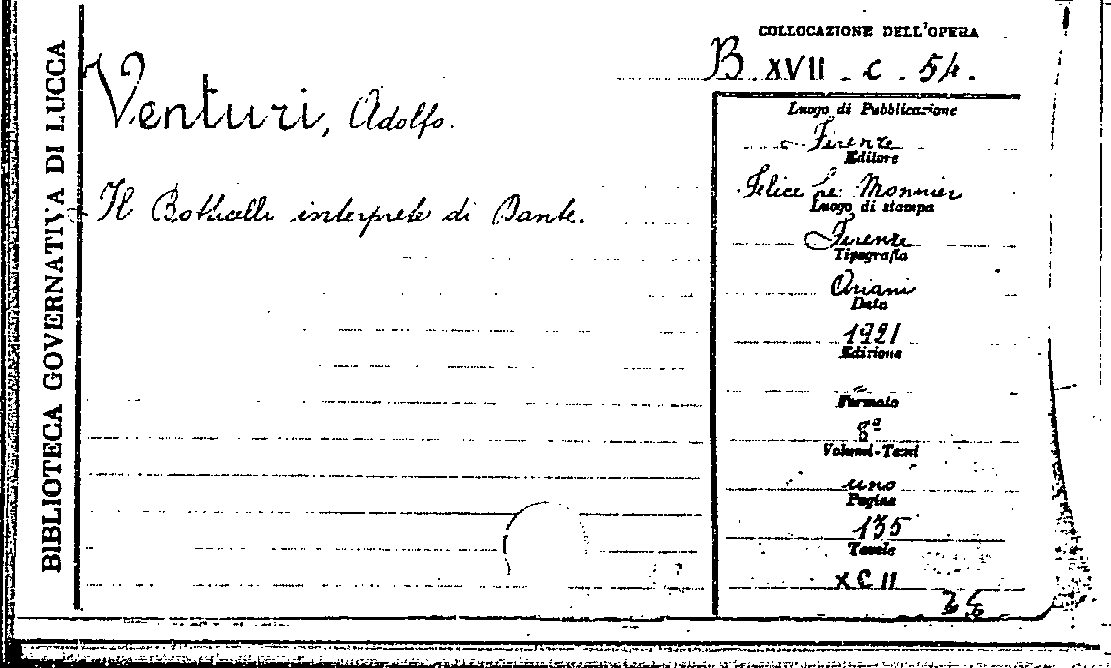 BIBLIOTECA GOVERNATIVA DI LUCCA
COLLOCAZIONE DELL'OPERA
B. XVII - C - 54.
Venturi, Adolfo.
Il Botticelli interprete di Dante.
Luogo di Pubblicazione
Firenze
Editore
Felice Le Monnier
Luogo di stampa
Firenze
Tipografia
Ariani
Data
1921
Edizione
Formato
8º
Volumi-Tomi
uno
Pagine
135
Tavole
XCII